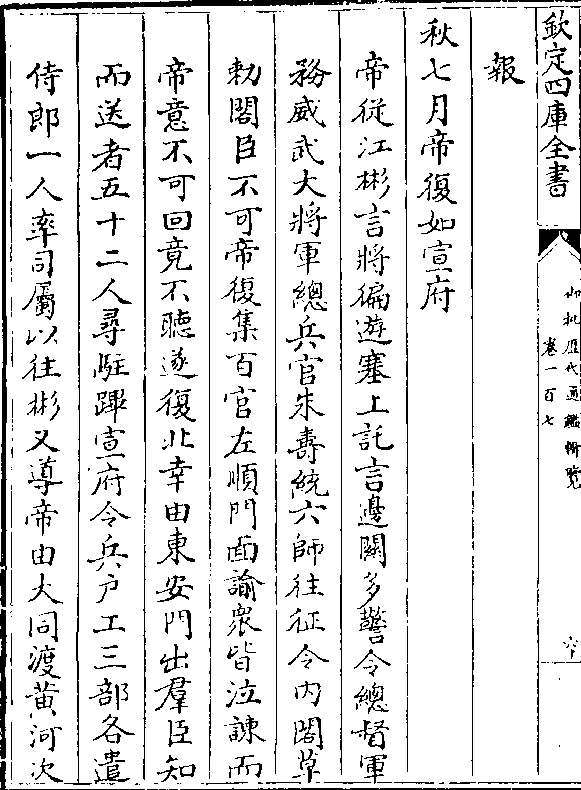 欽定四庫全書
御批歷代通鑑輯覽
卷一百七
六十
報
秋七月帝復如宣府
帝從江彬言將徧遊塞上託言邊關多警令總督軍
務威武大將軍總兵官朱壽統六師往征令內閣草
勅閣臣不可帝復集百官左順門面諭衆皆泣諫而
帝意不可回竟不聽遂復北幸由東安門出羣臣知
而送者五十二人尋駐蹕宣府令兵戶工三部各遣
侍郎一人率司屬以往彬又導帝由大同渡黃河次